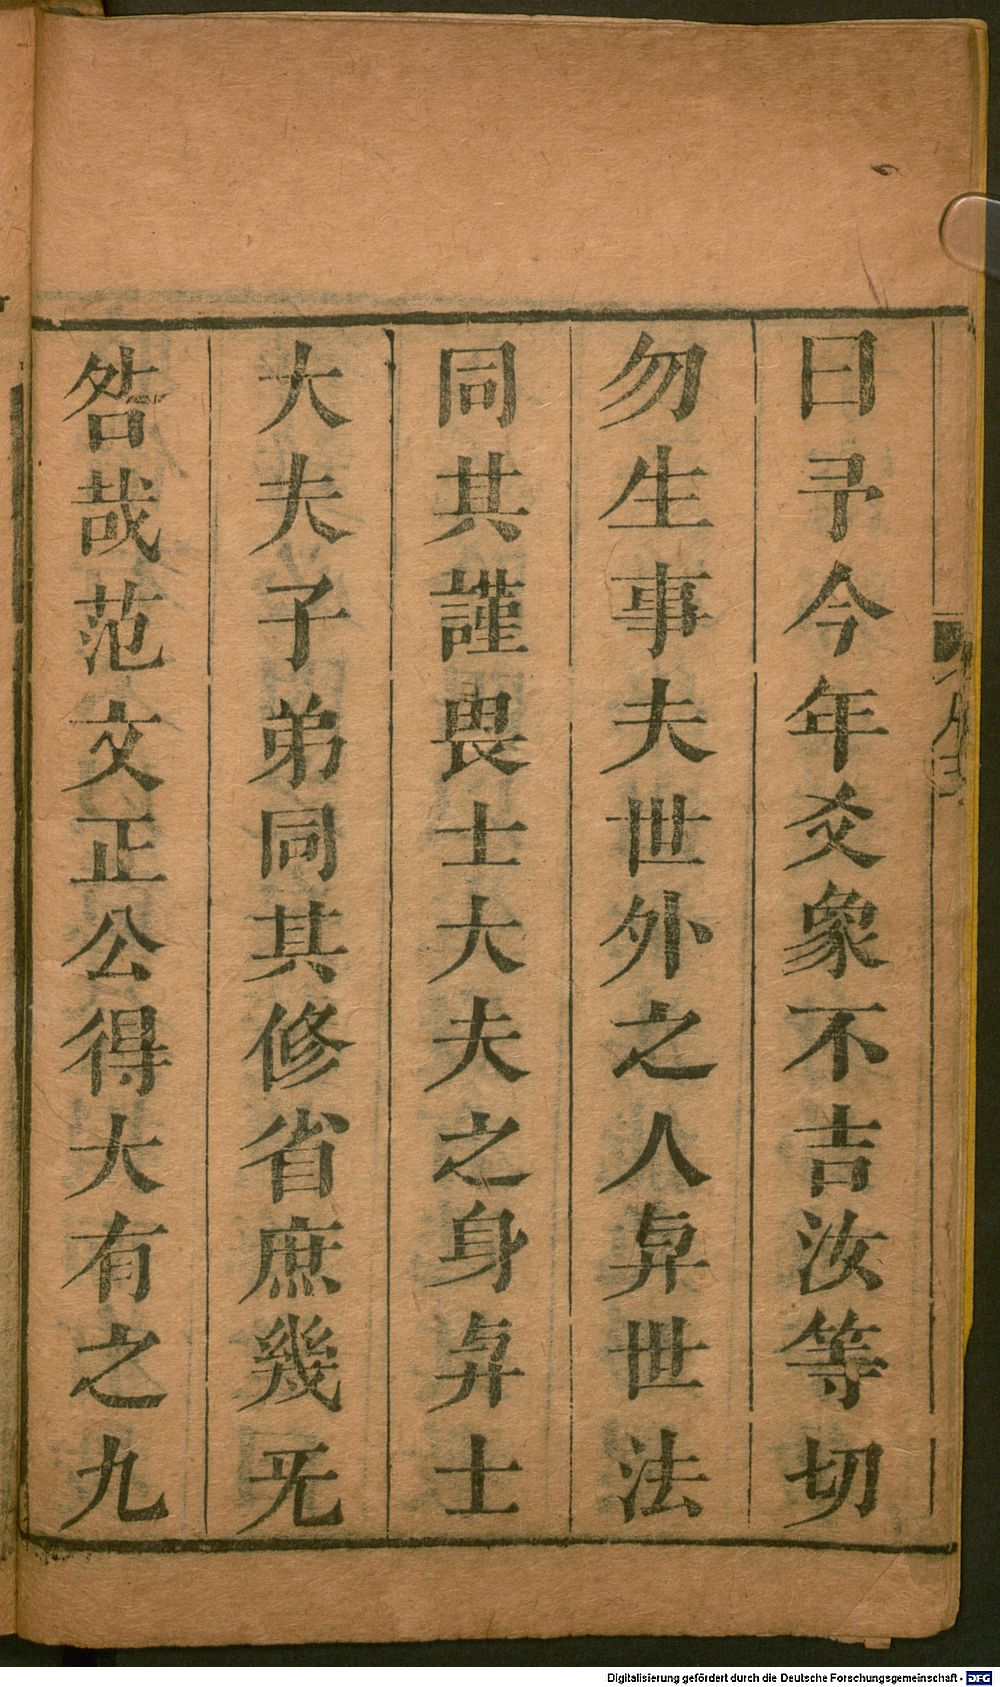 曰予今年爻象不吉汝等切
勿生事夫世外之人㒷世法
同共謹畏士大夫之身㒷士
大夫子弟同其修省庶幾旡
咎哉范文正公得大有之九
Digitalisierung gefördert durch die Deutsche Forschungsgemeinschaft - DFG